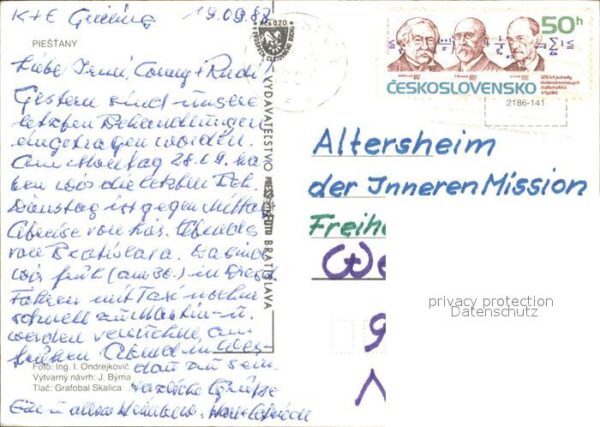 K+E 19.09.87
PIEŠŤANY
Liebe Irmi, + Rudi!
Gestern sind unsere
letzten Behandlungen
eingetragen worden.
Am Montag 28.09. ha-
ben wir die letzten Beh.
Dienstag ist gegen Mittag
Abreise von hier. Abends
von Bratislava. Da sind
wir früh (am 30.) in
Fahren mit Taxi noch
schnell zu Martin u.
werden versuchen am
frühen Abend in
dorf zu sein.
Herzliche Grüße
Foto: Ing. I. Ondrejkovič
Výtvarný návrh: J. Býrna
Tlač: Grafobal Skalica
VYDAVATEĽSTVO
BRATISLAVA
50h
ČESKOSLOVENSKO
2186-141
Altersheim
der Inneren Mission
Freih
We
9
privacy protection
Datenschutz